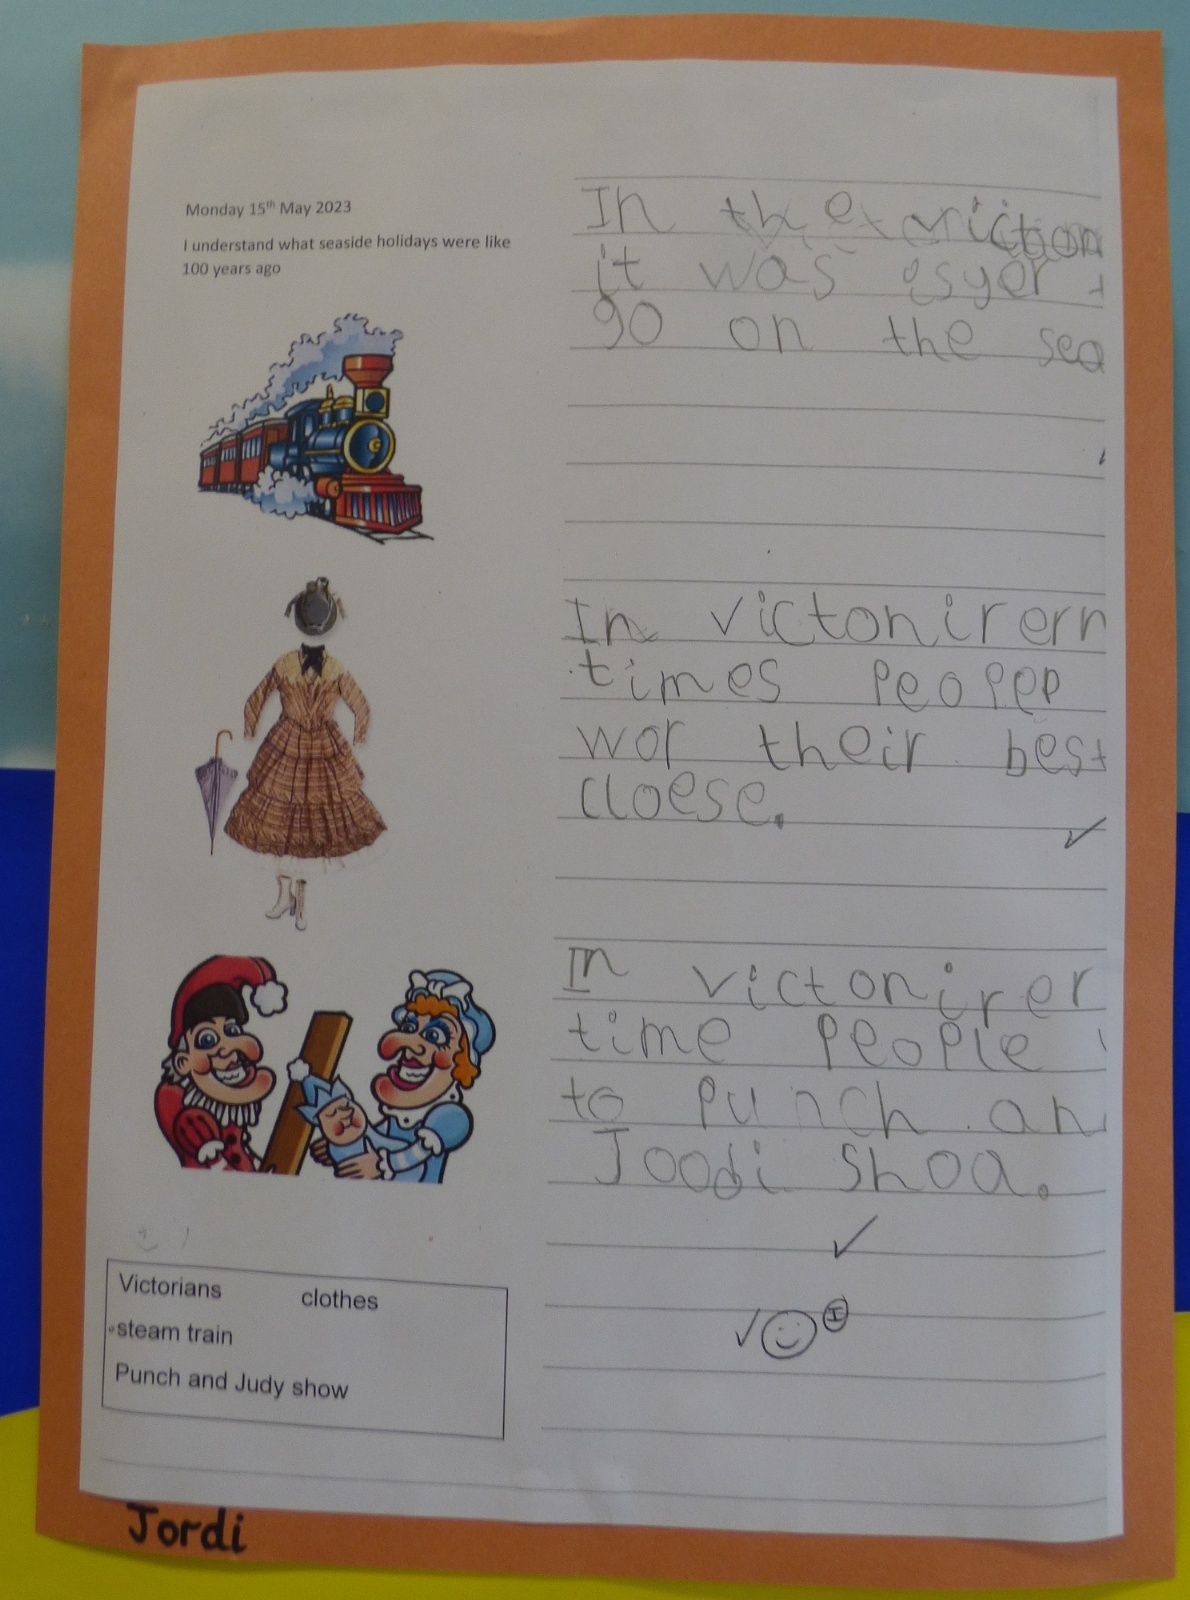 Monday 15th May 2023
I understand what seaside holidays were like
100 years ago
In the
it was esyer
go on the sea
In victonirern
times peopep
wor their best
cloese.
In victonirer
time people
to punch an
Joodi shoa.
Victorians clothes
steam train
Punch and Judy show
Jordi